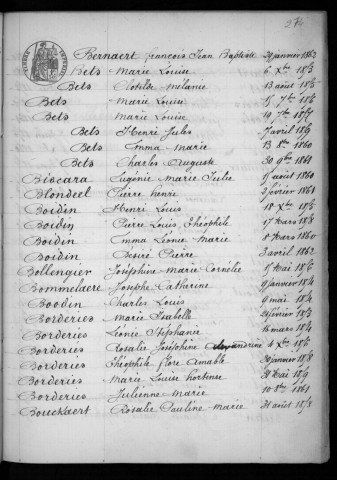 274
Bernaert François Jean Baptiste 29 janvier 1862
Bets Marie Louise 6 Xbre 1853
Bets Clotilde Mélanie 13 août 1855
Bets Marie Louise 5 7bre 1856
Bets Marie Louise 19 7bre 1857
Bets Henri Jules 7 avril 1859
Bets Emma Marie 13 8bre 1860
Bets Charles Auguste 30 9bre 1861
Biscara Eugénie Marie Julie 15 août 1860
Blondeel Pierre Henri 2 février 1861
Boidin Henri Louis 18 Xbre 1855
Boidin Pierre Louis Théophile 17 Mars 1858
Boidin Emma Léonie Marie 8 Mars 1860
Boidin Désiré Pierre 3 avril 1862
Bollengier Joséphine Marie Cornélie 15 Mai 1856
Bommelaere Joseph Catherine 9 janvier 1854
Boodin Charles Louis 9 mai 1854
Borderies Marie Isabelle 21 février 1853
Borderies Léonie Stéphanie 16 mars 1854
Borderies Rosalie Joséphine Alexandrine 4 Xbre 1856
Borderies Théophile Flore Aimable 30 janvier 1858
Borderies Marie Louise hortense 31 Mai 1859
Borderies Julienne Marie 10 8bre 1861
Bouckaert Rosalie Pauline Marie 31 août 1858